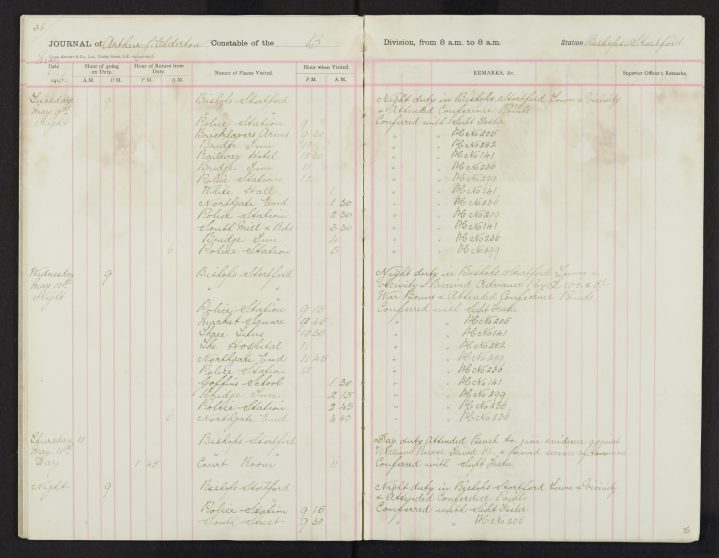 JOURNAL of Arthur J. Elderton Constable of the B Division, from 8 a.m. to 8 a.m. Station Bishops Stortford
Date Hour of going on Duty. Hour of Return from Duty. Names of Places Visited. Hour when Visited. REMARKS, &c. Superior Officer's Remarks.
A.M. P.M. P.M. A.M. P.M. A.M.
Tuesday 9 Bishops Stortford Night duty in Bishops Stortford Town & Vicinity
May 9th & Attended Conference Points
Night Police Station 9 Conferred with Supt Foster
Bricklayers Arms 9 30 " " PC No 205
Bridge Inn 10 " " PC No 282
Railway Hotel 10 30 " " PC No 141
Bridge Inn 11 " " PC No 236
Police Station 12 " " PC No 299
White Hall 1 " " PC No 141
Northgate End 1 30 " " PC No 236
Police Station 2 30 " " PC No 299
South Mill & Rds 3 30 " " PC No 141
Bridge Inn 4 " " PC No 236
6 Police Station 5 " " PC No 299
Wednesday 9 Bishops Stortford Night duty in Bishops Stortford Town &
May 10th " " Vicinity & Received Advance Pay
Night War Bonus & Attended Conference Points
Police Station 9 15 Conferred with Supt Foster
Market Square 9 45 " " PC No 205
Three Tuns 10 30 " " PC No 141
The Hospital 11 " " PC No 282
Northgate End 11 45 " " PC No 299
Police Station 12 " " PC No 236
Goffins School 1 30 " " PC No 141
Bridge Inn 2 15 " " PC No 299
Police Station 2 45 " " PC No 236
6 Northgate End 4 45 " " PC No 236
Thursday 11 Bishops Stortford Day duty Attended Bench to give evidence against
May 11th William fined & proved service of Summons
Day 1 45 Court Room 11 Conferred with Supt Foster
Night 9 Bishops Stortford Night duty in Bishops Stortford Town & Vicinity
& Attended Conference Points
Police Station 9 15 Conferred with Supt Foster
South Street 9 30 " " PC No 205
35